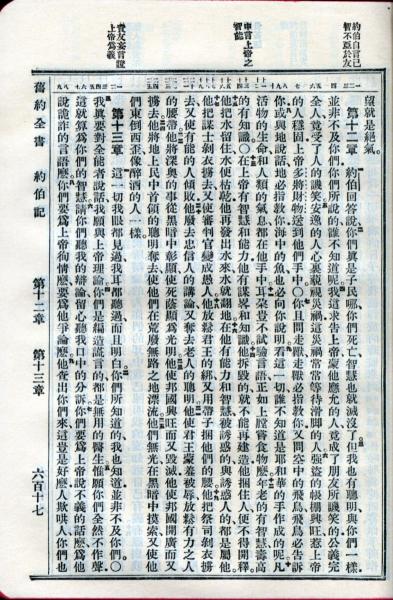 約伯自言己
智不亞於友
智能
責友妄言證
上帝爲義
望就是絕氣。
第十二章 約伯回答說你們眞是子民哪你們死亡智慧也就滅沒了但我也有聰明與你們一樣
並非不及你們你們所說的誰不知道呢我這求告上帝蒙他應允的人竟成了朋友所譏笑的公義完
全人竟受了人的譏笑安逸的人心裏藐視災禍這災禍常常等待滑脚的人強盜的帳棚興旺惹上帝
的人穩固上帝多將財物送到他們手中〇你且問走獸走獸必指教你又問空中的飛鳥飛鳥必告訴
你或與地說話地必指教你海中的魚也必向你說明看這一切誰不知道是耶和華的手作成的呢凡
活物的生命和人類的氣息都在他手中耳朵豈不試驗言語正如上膛嘗食物麼年老的有智慧壽高
的有知識〇在上帝有智慧和能力他有謀畧和知識他拆毀的就不能再建造他捆住人便不得開釋
他把水留住水便枯乾他再發出水來水就翻地在他有能力和智慧被誘惑的與誘惑人的都是屬他
他把謀士剝衣擄去又使審判官變成愚人他放鬆君王的綁又用帶子捆他們的腰他把祭司剝衣擄
去又使有能的人傾敗他廢去忠信人的講論又奪去老人的聰明他使君王蒙羞被辱放鬆有力之人
的腰帶他將深奧的事從黑暗中彰顯使死蔭顯爲光明他使邦國興旺而又毀滅他使邦國開廣而又
擄去他將地上民中首領的聰明奪去使他們在荒廢無路之地漂流他們無光在黑暗中摸索又使他
們東倒西歪像醉酒的人一樣。
第十三章 這一切我眼都見過我耳都聽過而且明白你們所知道的我也知道並非不及你們〇
我眞要對全能者說話我願與上帝理論你們是編造謊言的都是無用的醫生惟願你們全然不作聲
這就算爲你們的智慧請你們聽我的辯論留心聽我口中的分訴你們要爲上帝說不義的話麼爲他
說詭詐的言語麼你們要爲上帝徇情麼要爲他爭論麼他查出你們來這豈是好麼人欺哄人你們也
舊約全書 約伯記 第十二章 第十三章 六百十七